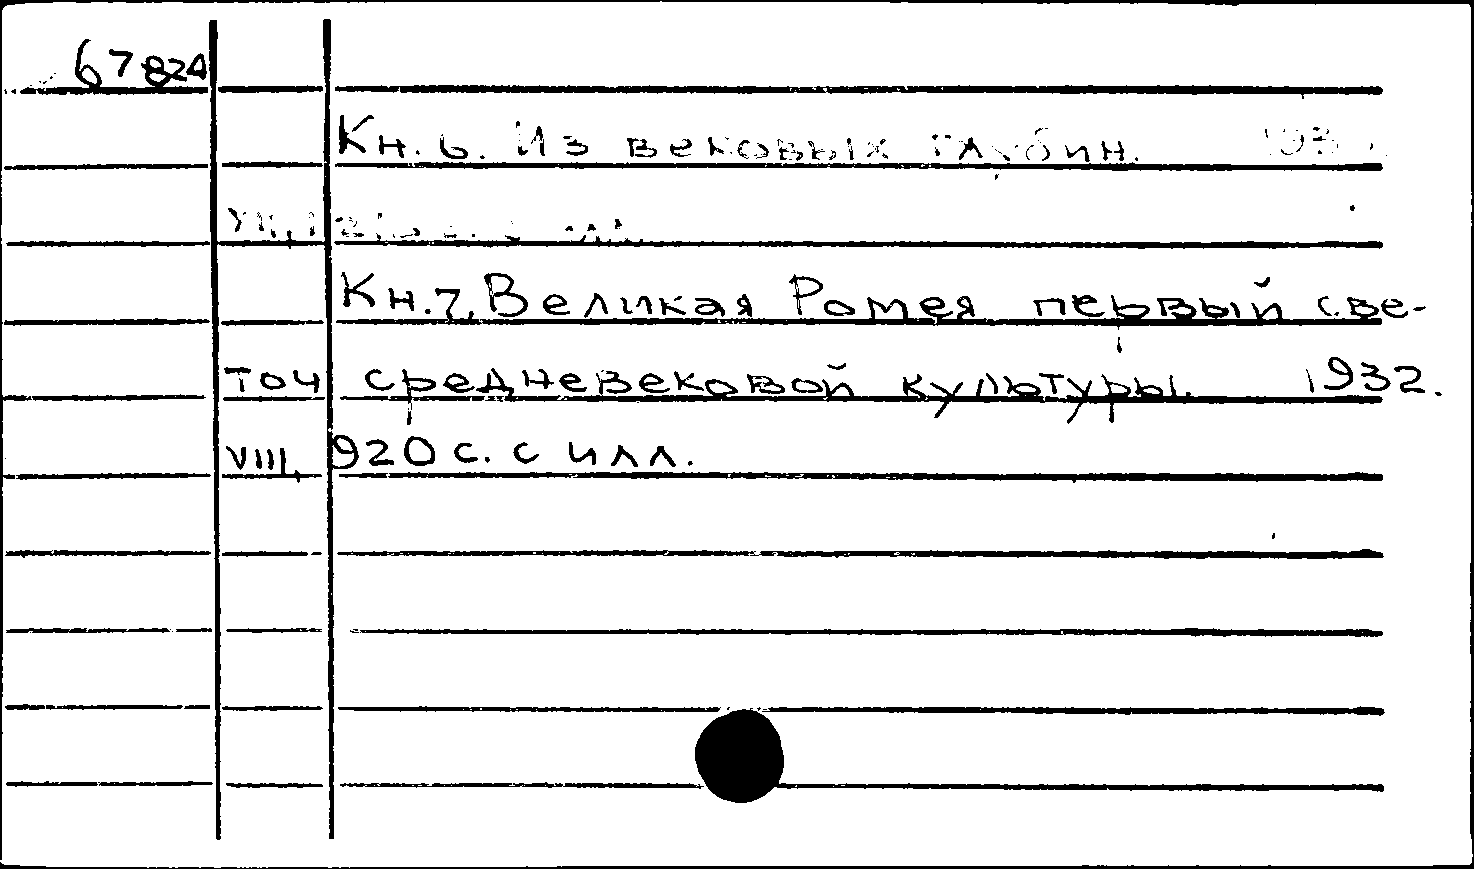 67824
Кн. 6. Из вековых глубин. 193
Кн. 7. Великая Ромея первый све-
точ средневековой культуры. 1932.
VIII, 920 с. с илл.